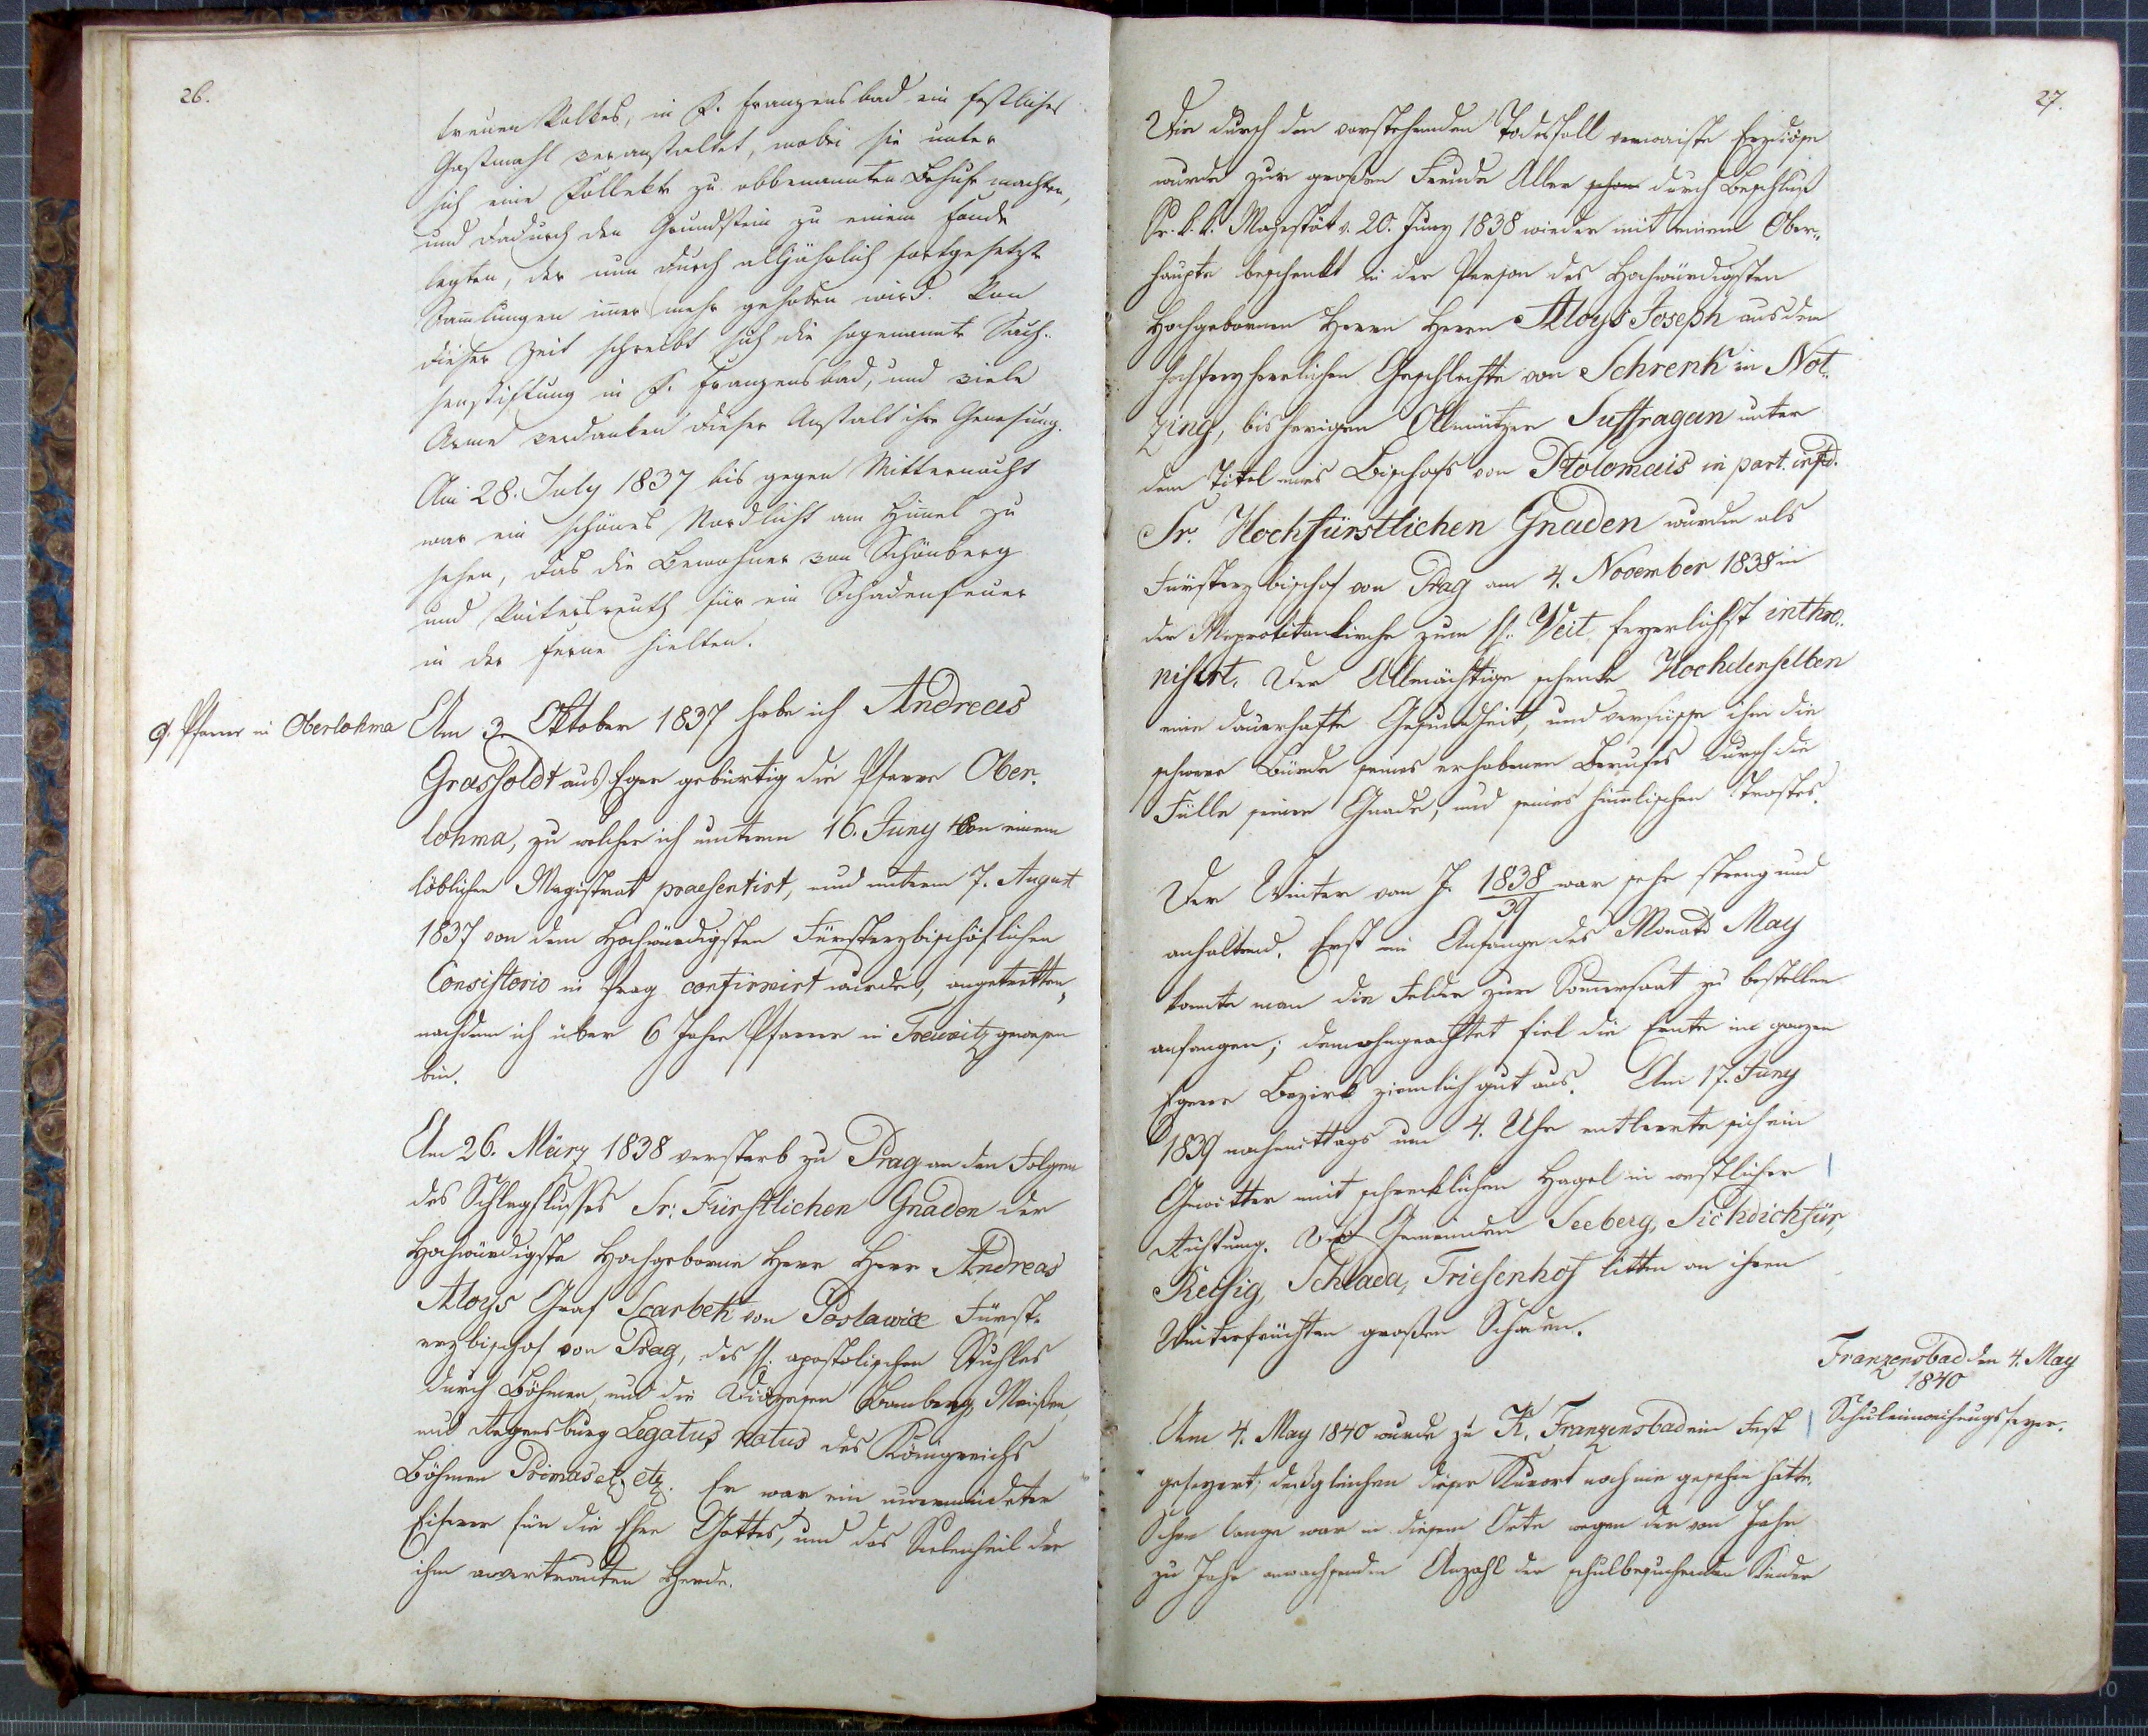 26.
treuen Volkes, in K. Franzensbad ein festliches
Gastmahl veranstaltet, wobei sie unter
sich eine Collekte zu obbenannten Behufe machten,
und dadurch den Grundstein zu einem Fonde
legten, der nun durch alljährlich fortgesetzte
Samlungen imer mehr gehoben wird. Von
dieser Zeit schreibt sich die sogenannte Sach-
senstiftung in K. Franzensbad, und viele
Arme verdanken dieser Anstalt ihre Genesung.
Am 28. July 1837 bis gegen Mitternacht
war ein schönes Nordlicht am Himel zu
sehen, das die Bewohner von Schönberg
und Voitersreuth für ein Schadenfeuer
in der Ferne hielten.
Pfarrer in Oberlohma
Am 3. Oktober 1837 habe ich Andreas
Grassoldt aus Eger gebürtig die Pfarre Ober-
lohma, zu welcher ich unterm 16. Juny von einem
löblichen Magistrat praesentirt, und unterm 7. August
1837 von dem Hochwürdigsten Fürsterzbischöflichen
Consistorio in Prag confirmirt wurde, angetretten,
nachdem ich über 6 Jahre Pfarrer in Trebnitz gewesen
bin.
Am 26. März 1838 verstarb zu Prag an den Folgen
des Schlagflusses Sr: Fürstlichen Gnaden der
Hochwürdigste Hochgeborne Herr Herr Andreas
Aloys Graf Scarbek von Poslawice Fürst-
erzbischof von Prag, des H. apostolischen Stuhles
durch Böhmen, und die Diözesen Bamberg, Meißen,
und Regensburg Legatus natus des Königreichs
Böhmen Primas etz etz. Er war ein unermüdeter
Eiferer für die Ehre Gottes, und das Seelenheil der
ihm anvertrauten Herde.
27.
Die durch den vorstehenden Todesfall verwaiste Erzdiözese
wurde zur großen Freude Aller schon durch Beschluß
Sr. k. k. Majestät v. 20. Juny 1838 wieder mit einem Ober-
haupte beschenkt in der Person des Hochwürdigsten
Hochgebornen Herrn Herrn Aloys Joseph aus dem
hochfreyherrlichen Geschlechte von Schrenk in Not-
zing, bisherigen Ollmützer Suffragan unter
dem Titel eines Bischofs von Ptolomais in part. infid.
Sr. Hochfürstlichen Gnaden wurde als
Fürsterzbischof von Prag am 4. November 1838 in
der Meprotitankirche zum H. Veit feyerlichst inthro-
nisirt. Der Allmächtige schenke Hochdenselben
eine dauerhafte Gesundheit, und versüsse ihm die
schwere Bürde seines erhabenen Berufes durch die
Fülle seiner Gnade, und seines himlischen Trostes.
Der Winter vom J. 1838/39 war sehr streng und
anhaltend. Erst im Anfange des Monats May
konnte man die Felder zur Somersaat zu bestellen
anfangen; demohngeachtet fiel die Ernte im ganzen
Egerer Bezirk ziemlich gut aus. Am 17. Juny
1839 nachmittags um 4. Uhr entleerte sich ein
Gewitter mit schrecklichem Hagel in westlicher
Richtung. Die Gemeinden Seeberg, Sichdichfür,
Reißig, Schlada, Triesenhof litten an ihren
Winterfrüchten großen Schaden.
Franzensbad den 4. May
1840
Schuleinweihungsfeyer.
Am 4. May 1840 wurde zu K. Franzensbad ein Fest
gefeyert, desgleichen dieser Kurort noch nie gesehen hatte.
Schon lange war in diesem Orte wegen der von Jahr
zu Jahr anwachsenden Anzahl der schulbesuchenden Kinder